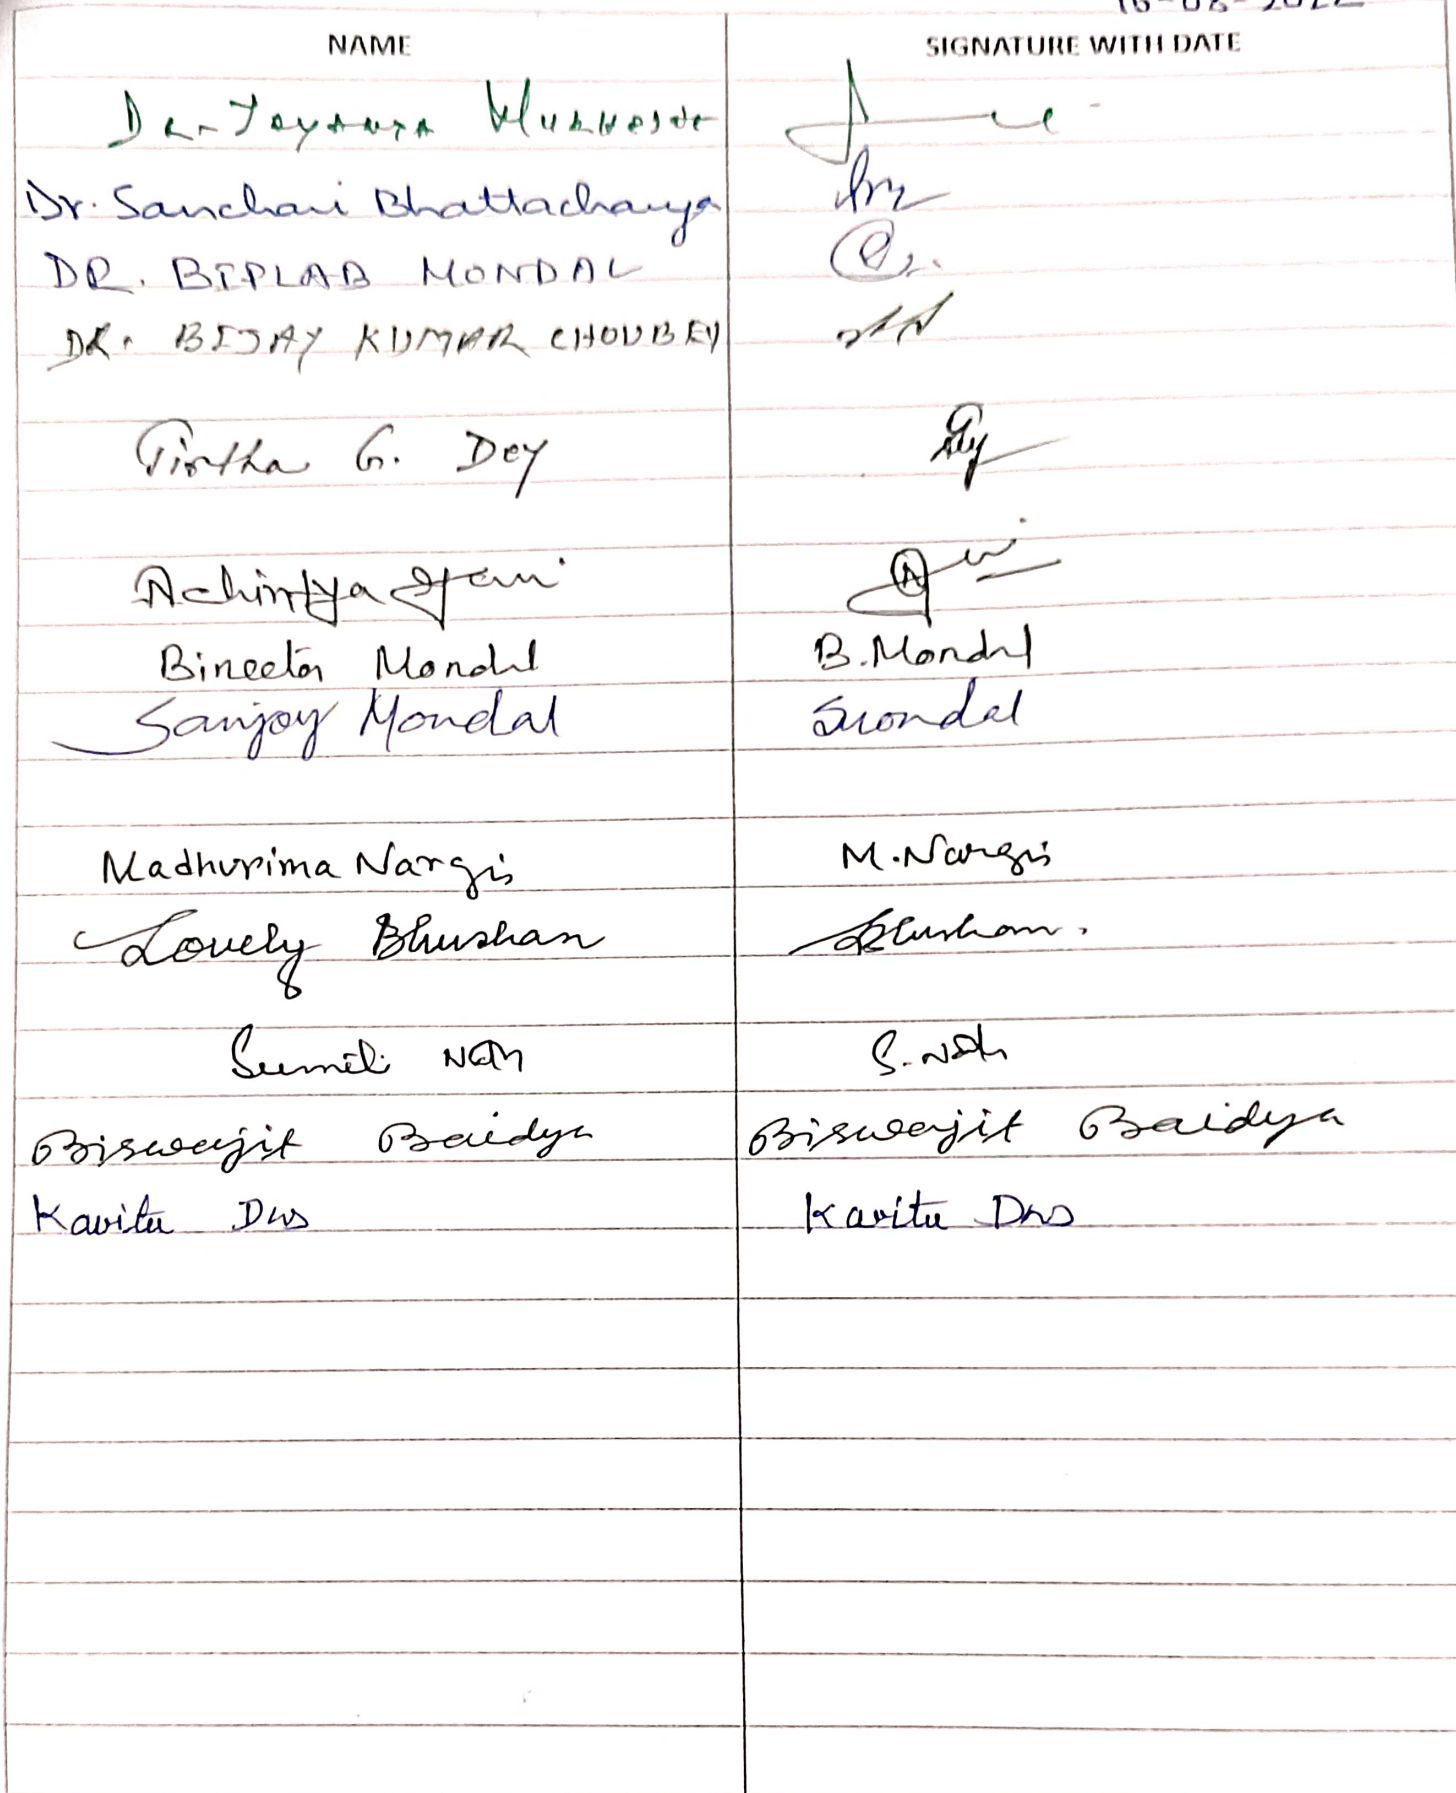 NAME SIGNATURE WITH DATE
Dr. Jayanta
Dr. Sanchari Bhattacharya
DR. BIPLAB MONDAL
DR. BIJAY KUMAR CHOUBEY
Tirtha G. Dey
Achintya
Bineeta Mondal B. Mondal
Sanjoy Mondal Smondal
Madhurima Nargis M. Nargis
Lovely Bhushan LBhushan.
Sumit Nath S. Nath
Biswajit Baidya Biswajit Baidya
Kavita Das Kavita Das